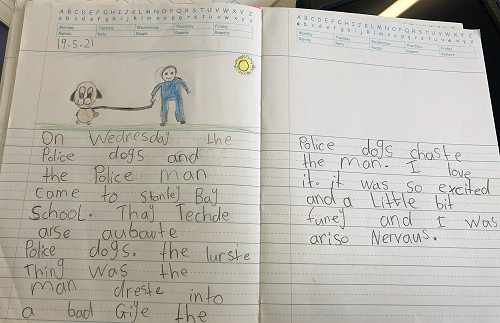 A B C D E F G H I J K L M N O P Q R S T U V W X Y Z
a b c d e f g h i j k l m n o p q r s t u v w x y z
Monday Tuesday Wednesday Thursday Friday
19.5.21
On Wednesday the
Police dogs and
the Police man
came to stanley Bay
School. Thay Techde
arse auboute
Police dogs. the lurste
Thing was the
man dreste into
a bad Giye the
A B C D E F G H I J K L M N O P Q R S T U V W X Y Z
a b c d e f g h i j k l m n o p q r s t u v w x y z
Monday Tuesday Wednesday Thursday Friday
Police dogs chaste
the man. I love
it. it was so excited
and a Little bit
funey and I was
ariso Nervaus.